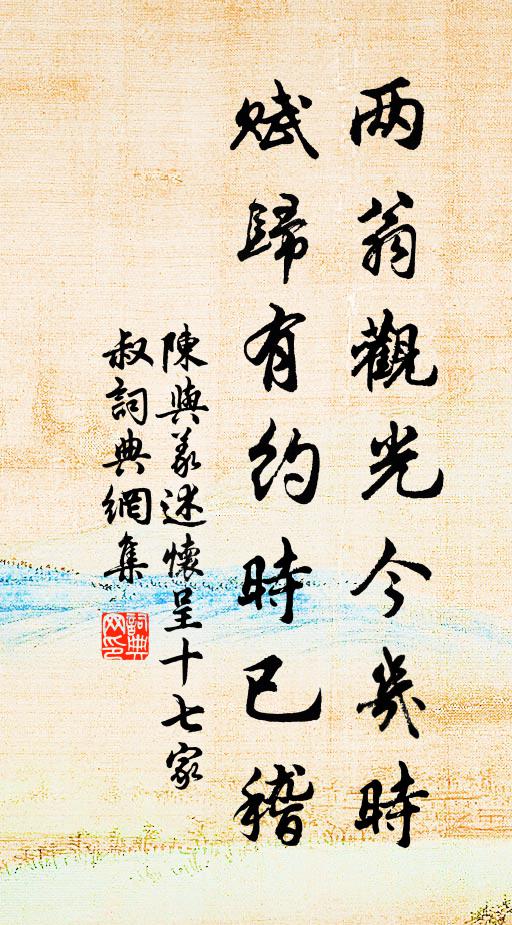 两翁觀光今幾時
賦歸有約時已稽
陳與義述懷呈十七家
叔詞典網集
詞典
网印